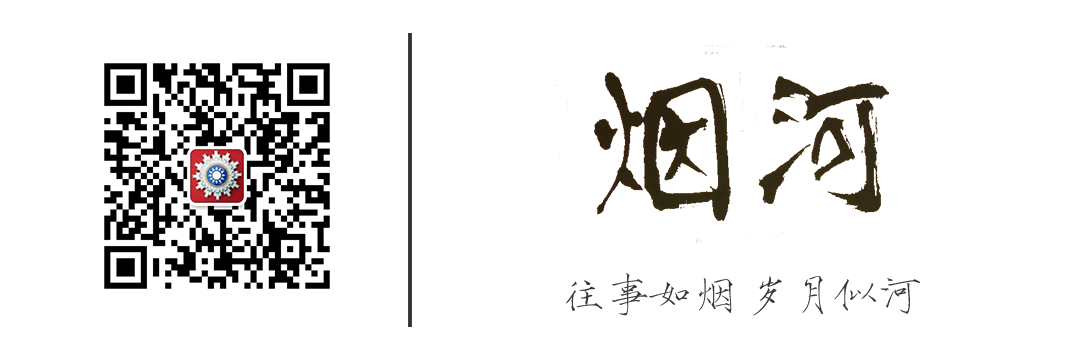 烟河
往事如烟 岁月似河